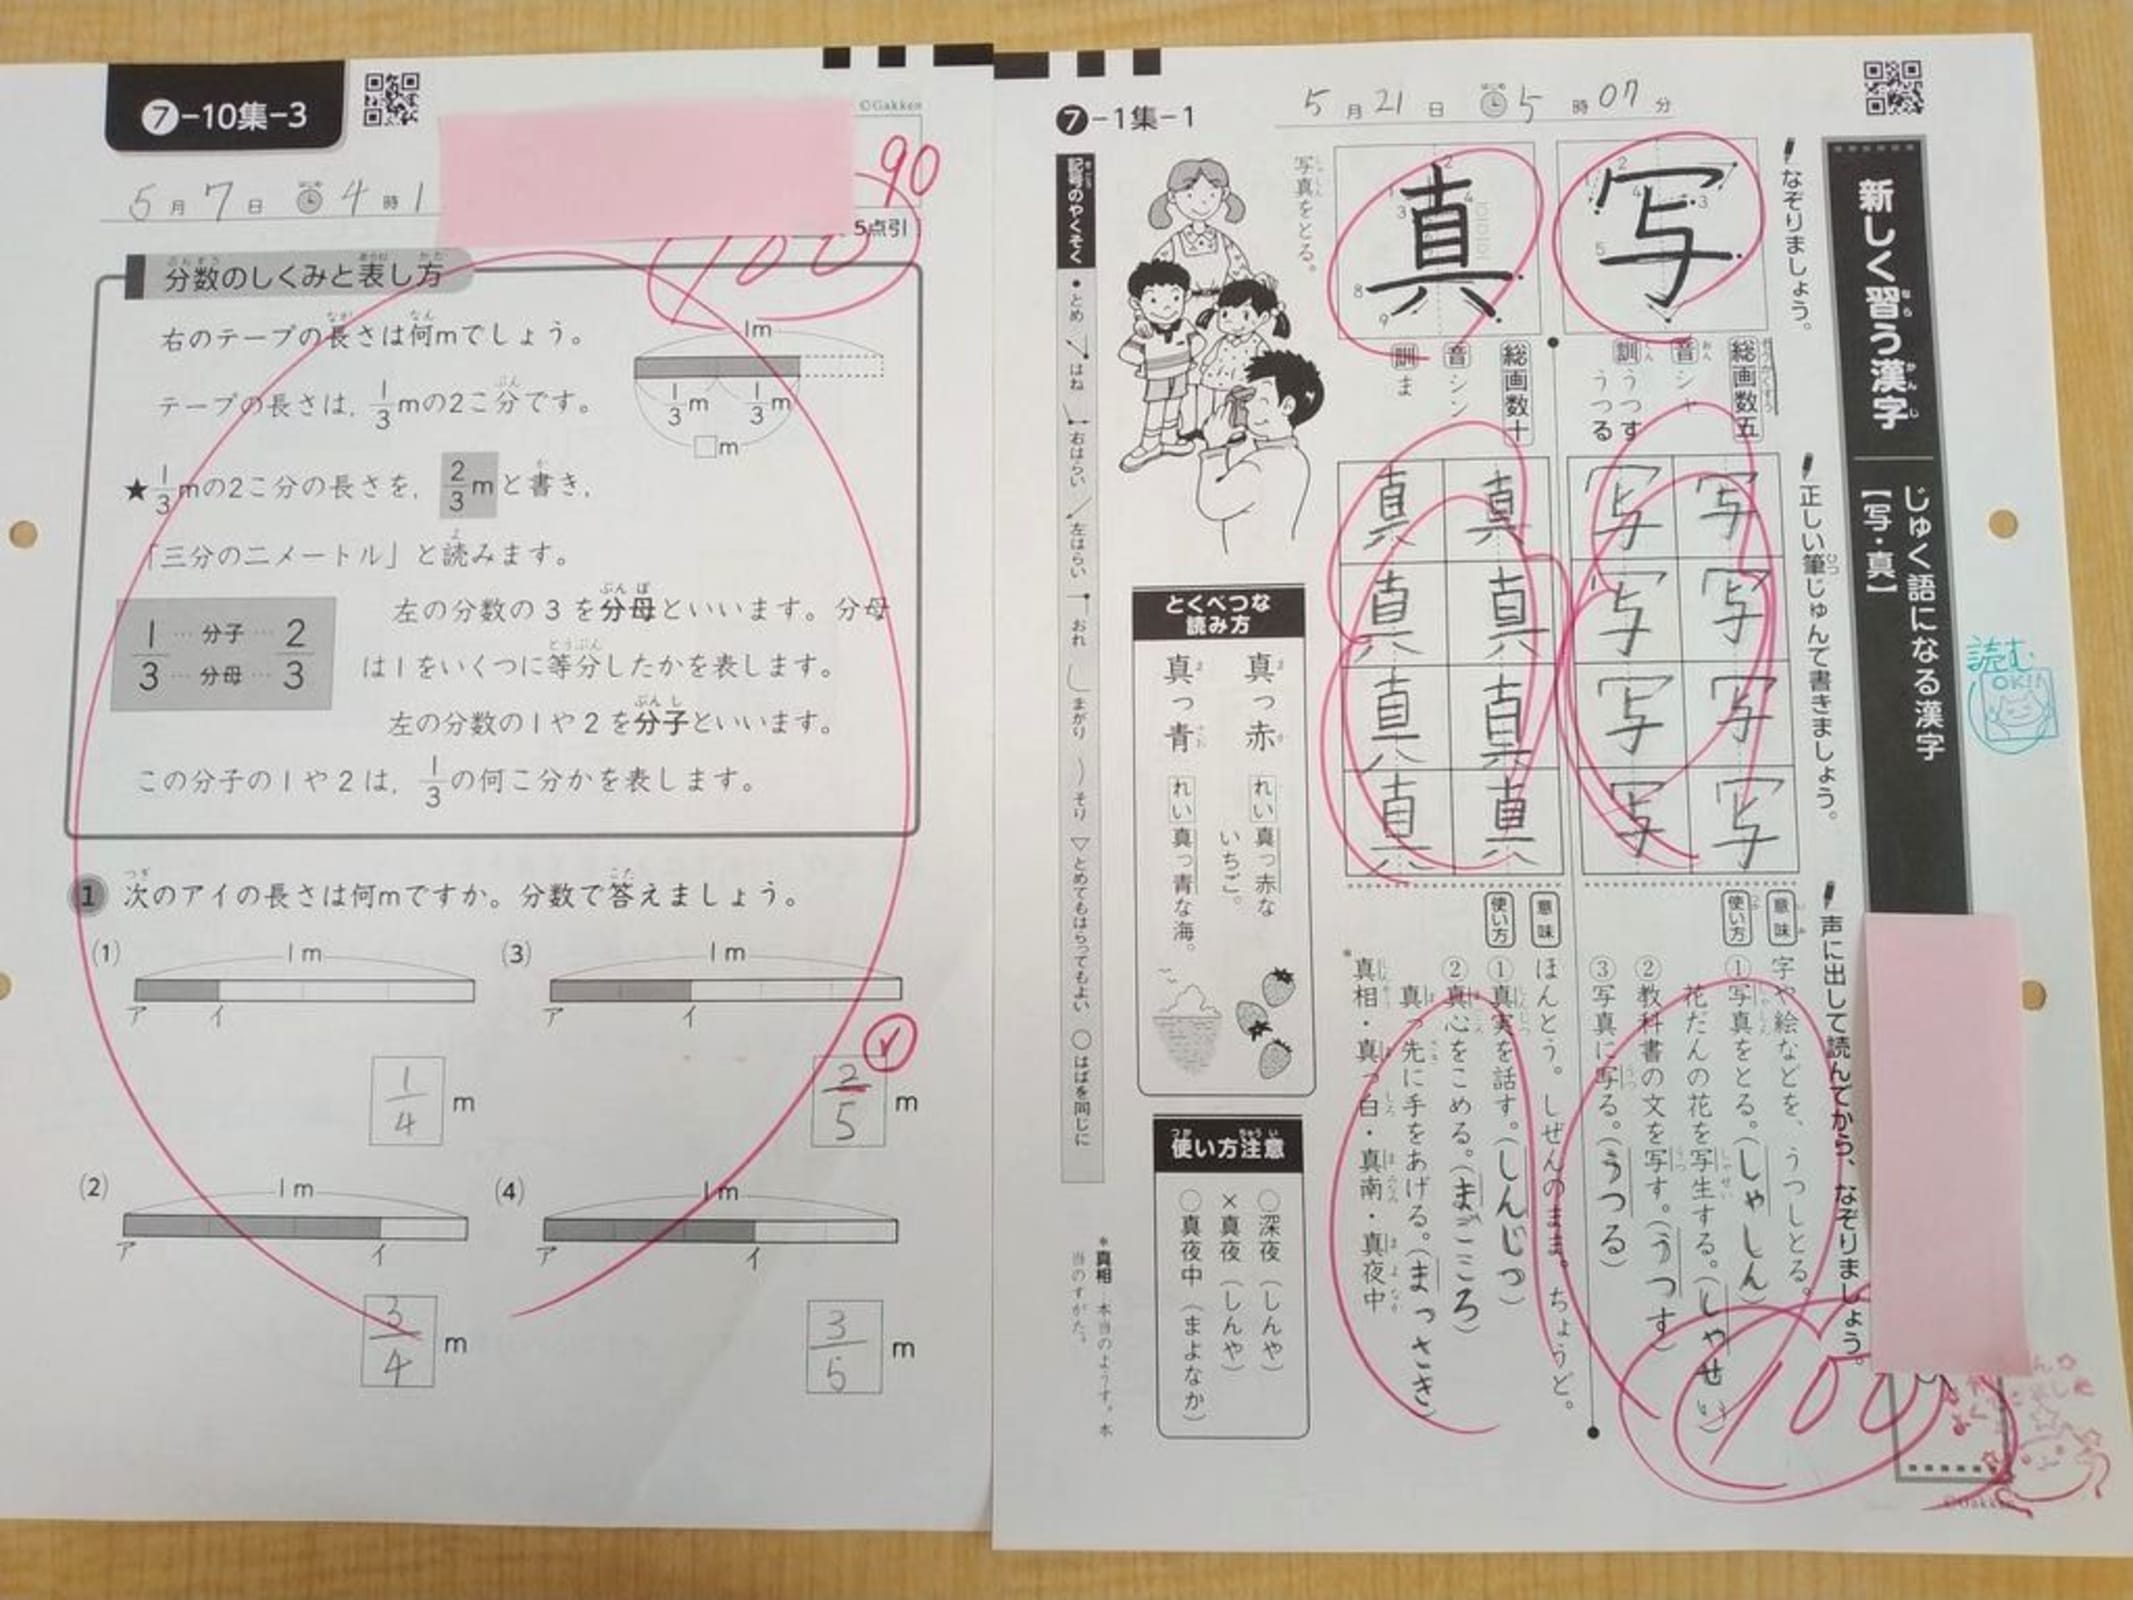 7-10集-3
©Gakken
5月7日 4時1
90
5点引
100
分数のしくみと表し方
右のテープの長さは何mでしょう。
テープの長さは,1/3mの2こ分です。
1m
1/3m 1/3m
□m
★1/3mの2こ分の長さを,2/3mと書き,
「三分の二メートル」と読みます。
1/3 … 分子 … 2/3
… 分母 …
左の分数の3を分母といいます。分母
は1をいくつに等分したかを表します。
左の分数の1や2を分子といいます。
この分子の1や2は,1/3の何こ分かを表します。
1 次のアイの長さは何mですか。分数で答えましょう。
(1) 1m
ア イ
1/4 m
(2) 1m
ア イ
3/4 m
(3) 1m
ア イ
2/5 m
(4) 1m
ア イ
3/5 m
7-1集-1
5月21日 はじめ 5時07分
新しく習う漢字
じゅく語になる漢字
【写・真】
読む
OK!!
なぞりましょう。
写
真
写真をとる。
総画数五
音 シャ
訓 うつす
うつる
総画数十
音 シン
訓 ま
正しい筆じゅんで書きましょう。
写 写
写 写
写 写
写 写
真 真
真 真
真 真
真 真
声に出して読んでから、なぞりましょう。
意味 字や絵などを、うつしとる。
使い方 ①写真をとる。(しゃしん)
花だんの花を写生する。(しゃせい)
②教科書の文を写す。(うつす)
③写真に写る。(うつる)
意味 ほんとう。しぜんのまま。ちょうど。
使い方 ①真実を話す。(しんじつ)
②真心をこめる。(まごころ)
真っ先に手をあげる。(まっさき)
*真相・真っ白・真南・真夜中
記号のやくそく
●とめ はね 右はらい 左はらい おれ まがり そり ▽とめてもはらってもよい ○はばを同じに
とくべつな読み方
真っ赤
れい 真っ赤な
いちご。
真っ青
れい 真っ青な海。
使い方注意
○深夜(しんや)
×真夜(しんや)
○真夜中(まよなか)
*真相…本当のようす。本
当のすがた。
100
©Gakken